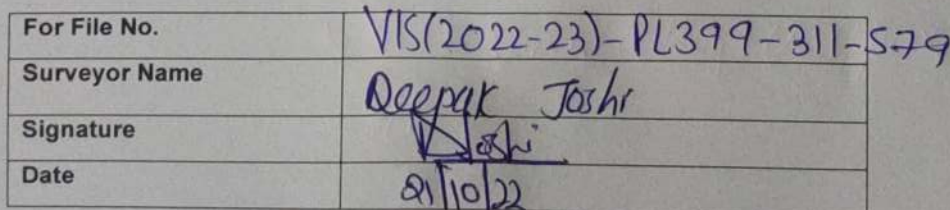 For File No. VIS(2022-23)-PL399-311-579
Surveyor Name Deepak Joshi
Signature DJoshi
Date 21/10/22